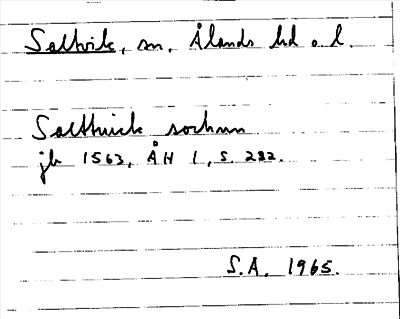 Saltvik, sn, Ålands hd o. l.
Saltthwick sochnn
jb 1563, ÅH 1, s. 282.
S.A. 1965.